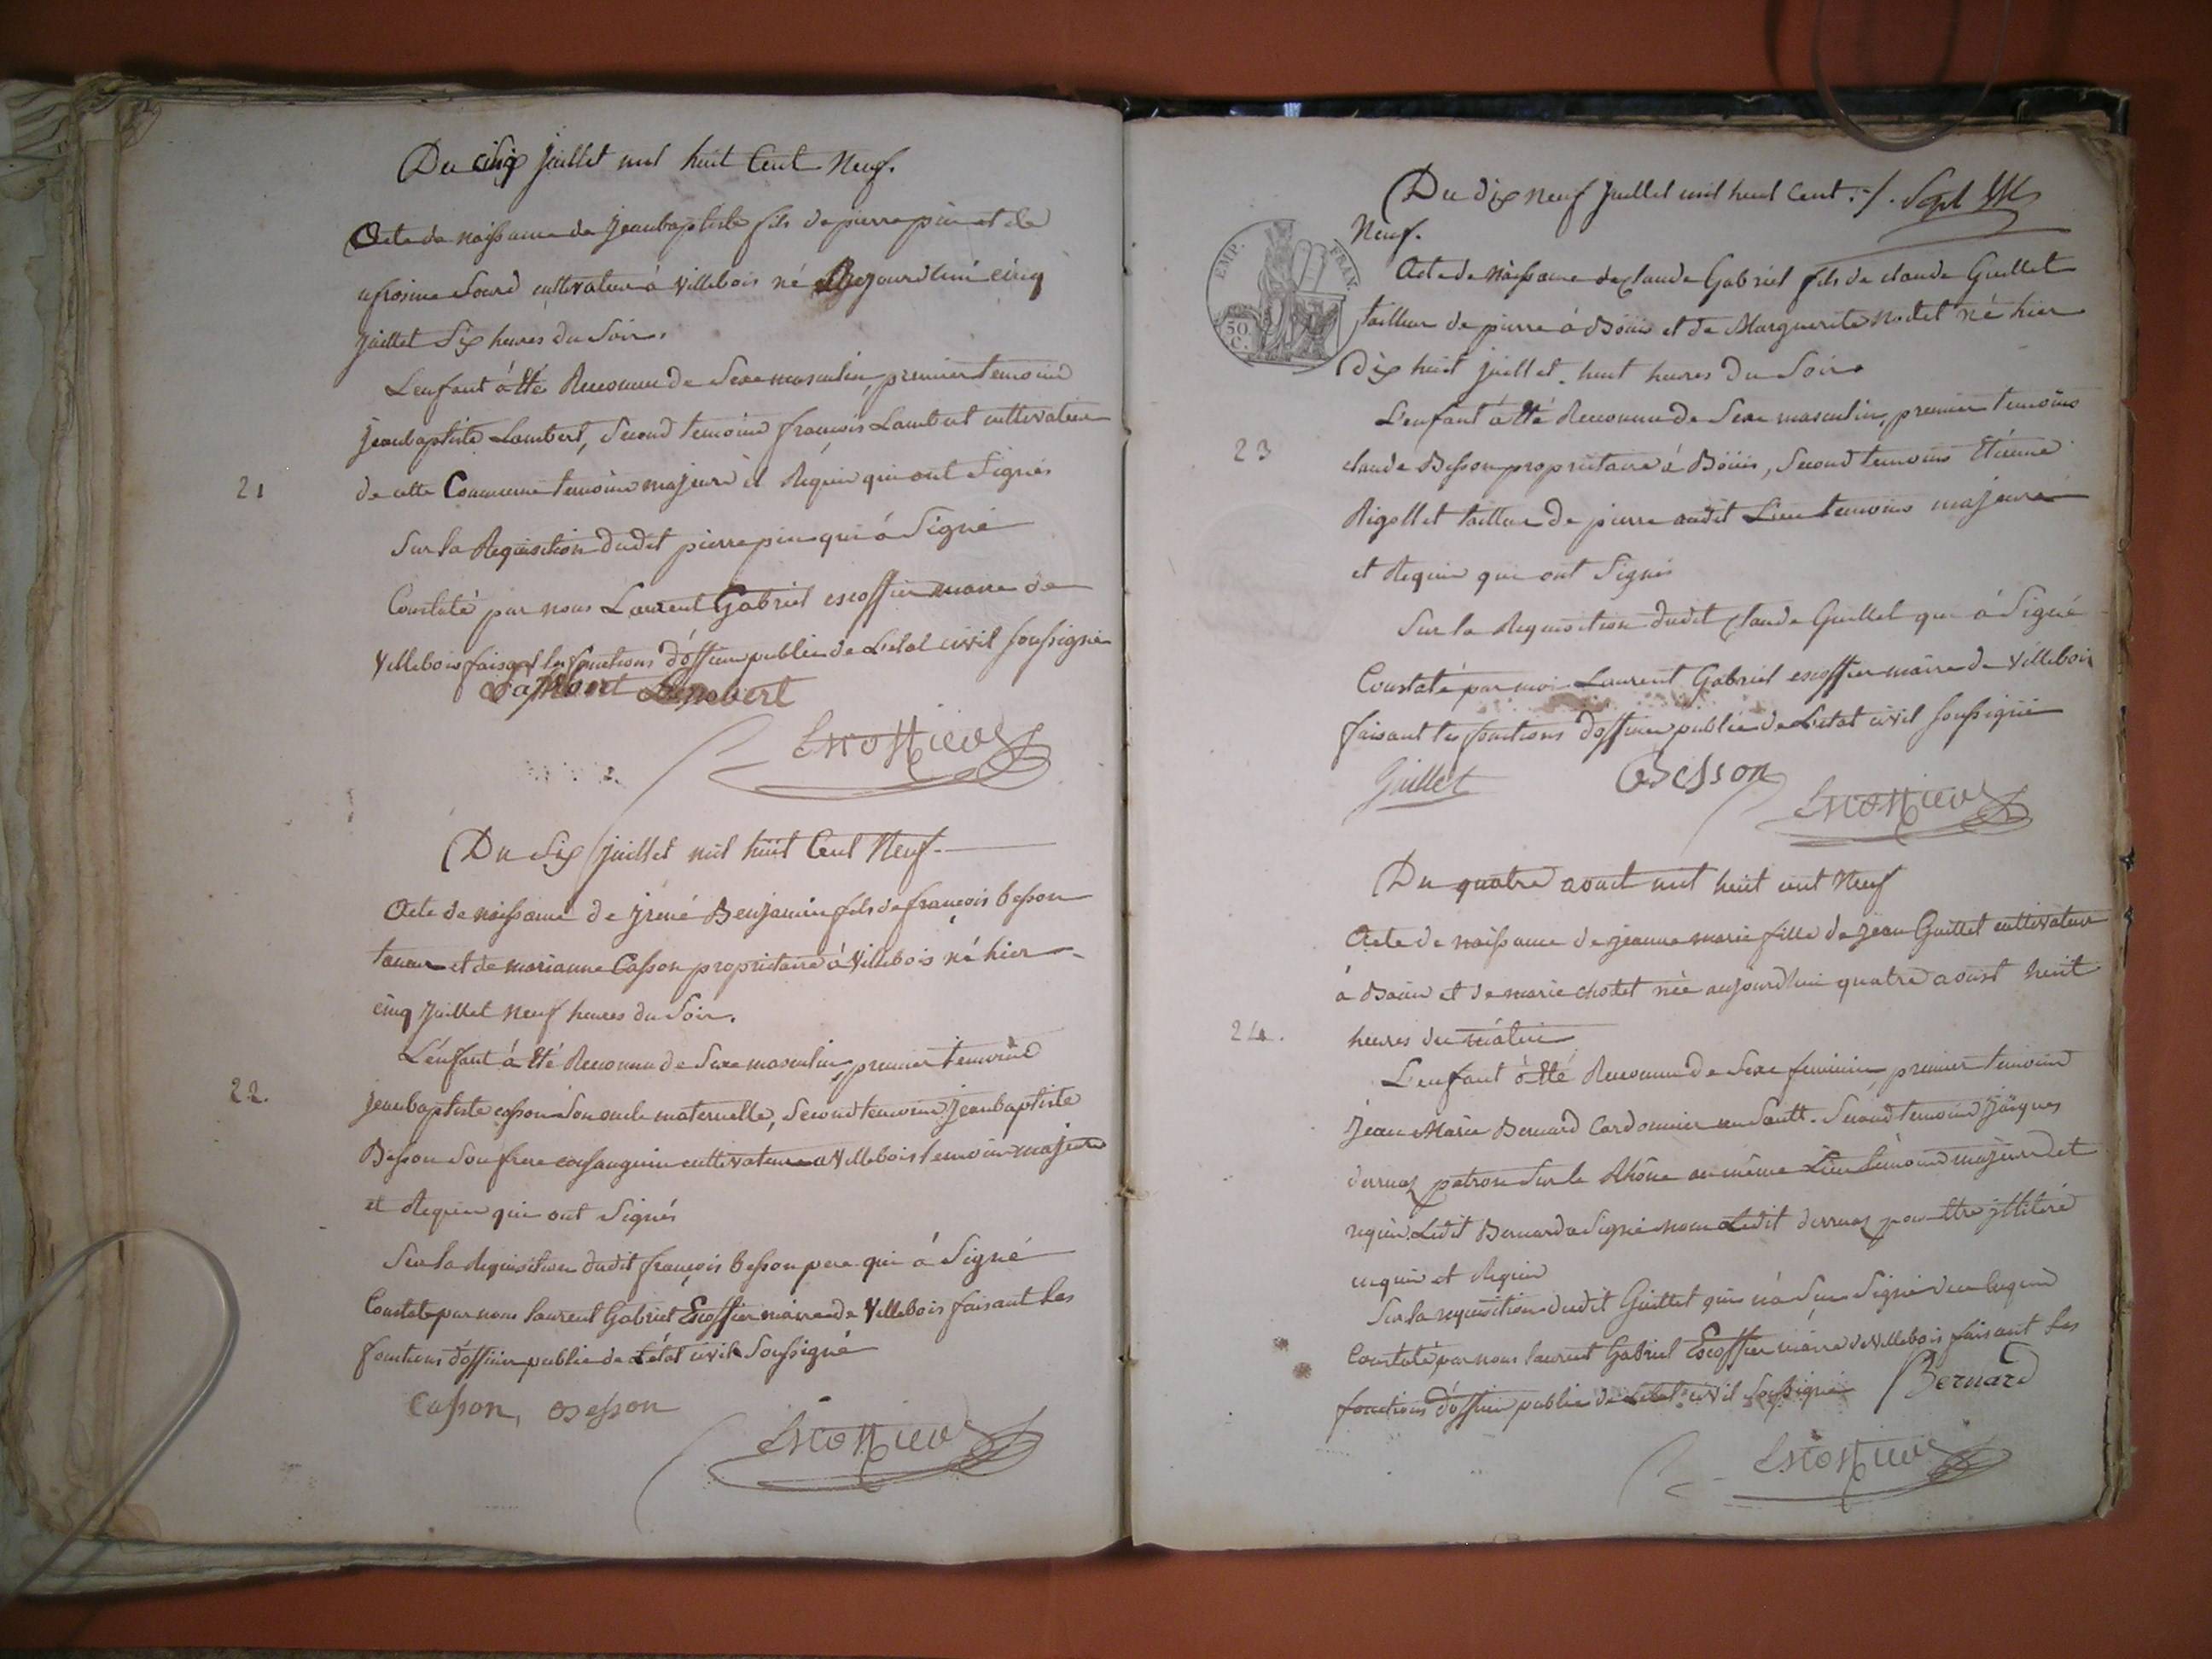 Du cinq juillet mil huit Cent Neuf.
Acte de naissance de jeanbaptiste fils de pierre pin et de
ufrosine Sourd cultivateur á villebois né aujourd'hui cinq
juillet Six heures du Soir.
L'enfant á été Reconnu de Sexe masculin, premier temoin
jeanbaptiste Lambert, Second temoin françois Lambert cultivateur
21
de cette Commune temoins majeurs et Requis qui ont Signés
Sur la Requisition dudit pierre pin qui á Signé
Constaté par nous Laurent Gabriel escoffier maire de
Villebois faisant les fonctions d'officier public de L'etat civil soussigné
Lambert
Escoffier
Du Six juillet mil huit Cent Neuf.
Acte de naissance de jrené Benjamin fils de françois besson
et de marianne Casson propriétaire á Villebois né hier
cinq juillet Neuf heures du Soir.
L'enfant á été Reconnu de Sexe masculin, premier temoin
22.
jeanbaptiste casson Son oncle maternelle, Second temoin jeanbaptiste
Besson Son frere consanguin cultivateurs a Villebois temoins majeurs
et Requis qui ont Signés
Sur la Requisition dudit françois besson pere qui á Signé
Constaté par nous laurent Gabriel Escoffier maire de Villebois faisant les
fonctions d'officier public de L'état civil Soussigné
Casson, Besson
Escoffier
Du dix neuf juillet mil huit Cent
Neuf.
EMP. FRAN.
50 C.
Acte de naissance de claude Gabriel fils de claude Guillet
tailleur de pierre á Böuis et de Marguerite Nodet né hier
dix huit juillet huit heures du Soir
L'enfant á été Reconnu de Sexe masculin, premier temoins
23
claude Besson proprietaire á Böuis, Second temoins Etienne
Rigollet tailleur de pierre audit Lieu temoins majeurs
et Requis qui ont Signés
Sur la Requisition dudit claude Guillet qui á Signé
Constaté par moi Laurent Gabriel escoffier maire de Villebois
faisant les fonctions d'officier public de L'etat civil soussigné
Guillet
Besson
Escoffier
Du quatre aoust mil huit cent Neuf
Acte de naissance de jeanne marie fille de jean Guillet cultivateur
á Böuis et de marie chodet née aujourd'hui quatre aoust huit
24.
heures du mátin
L'enfant á été Reconnu de Sexe feminin, premier temoin
jean Marie Bernard Cordonnier au Sault. Second temoin jacques
derruaz patron Sur le Rhône au même Lieu temoins majeurs et
requis. Ledit Bernard a Signé non Ledit derruaz pour etre jlliteré
enquis et Requis
Sur la requisition dudit Guillet qui n'á Su Signer de ce requis
Constaté par nous laurent Gabriel Escoffier maire de Villebois faisant les
fonctions d'officier public de L'etat civil soussigné
Bernard
Escoffier